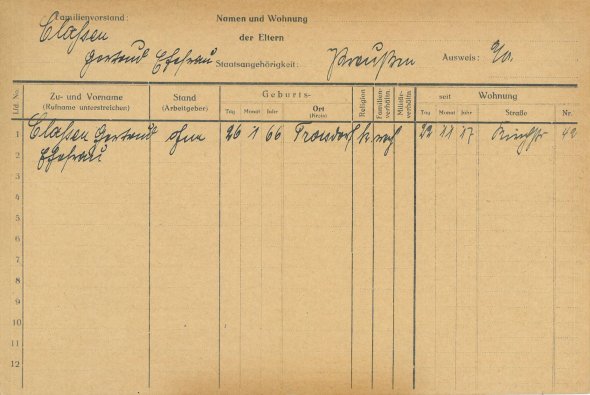 Familienvorstand: Namen und Wohnung
der Eltern
Classen
Gertrud Ehefrau Staatsangehörigkeit: Preußen Ausweis:
Lfd. No. Zu- und Vorname Stand Geburts- Religion Familien-verhältn. Militär-verhältn. seit Wohnung
(Rufname unterstreichen) (Arbeitgeber) Tag Monat Jahr Ort (Kreis) Tag Monat Jahr Straße Nr.
1 Classen Gertrud ohne 26 1 66 k. 22 11 17 Kirchstr 42
Ehefrau
2
3
4
5
6
7
8
9
10
11
12